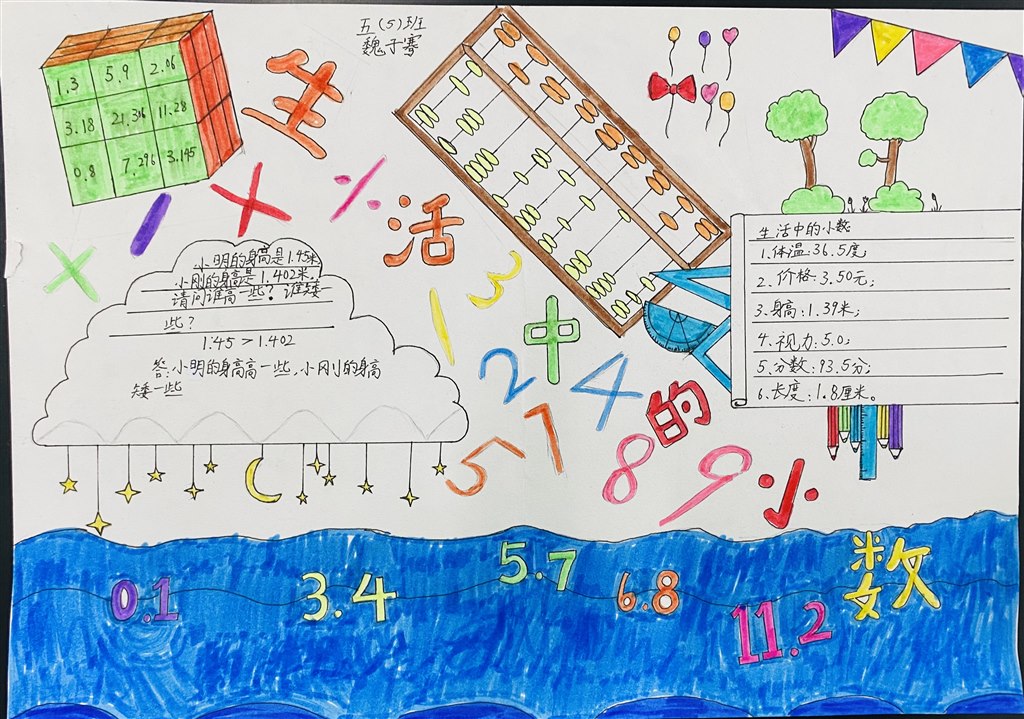 五(5)班
魏子骞
1.3 5.9 2.06
3.18 21.316 11.28
0.8 7.296 3.145
生
活
中
的
小
数
小明的身高是1.45米
小刚的身高是1.402米,
请问谁高一些?谁矮一
些?
1.45 > 1.402
答:小明的身高高一些,小刚的身高
矮一些
3
1
2
4
5
7
8
9
生活中的小数
1.体温:36.5度
2.价格:3.50元;
3.身高:1.39米;
4.视力:5.0;
5.分数:93.5分;
6.长度:1.8厘米。
0.1
3.4
5.7
6.8
11.2